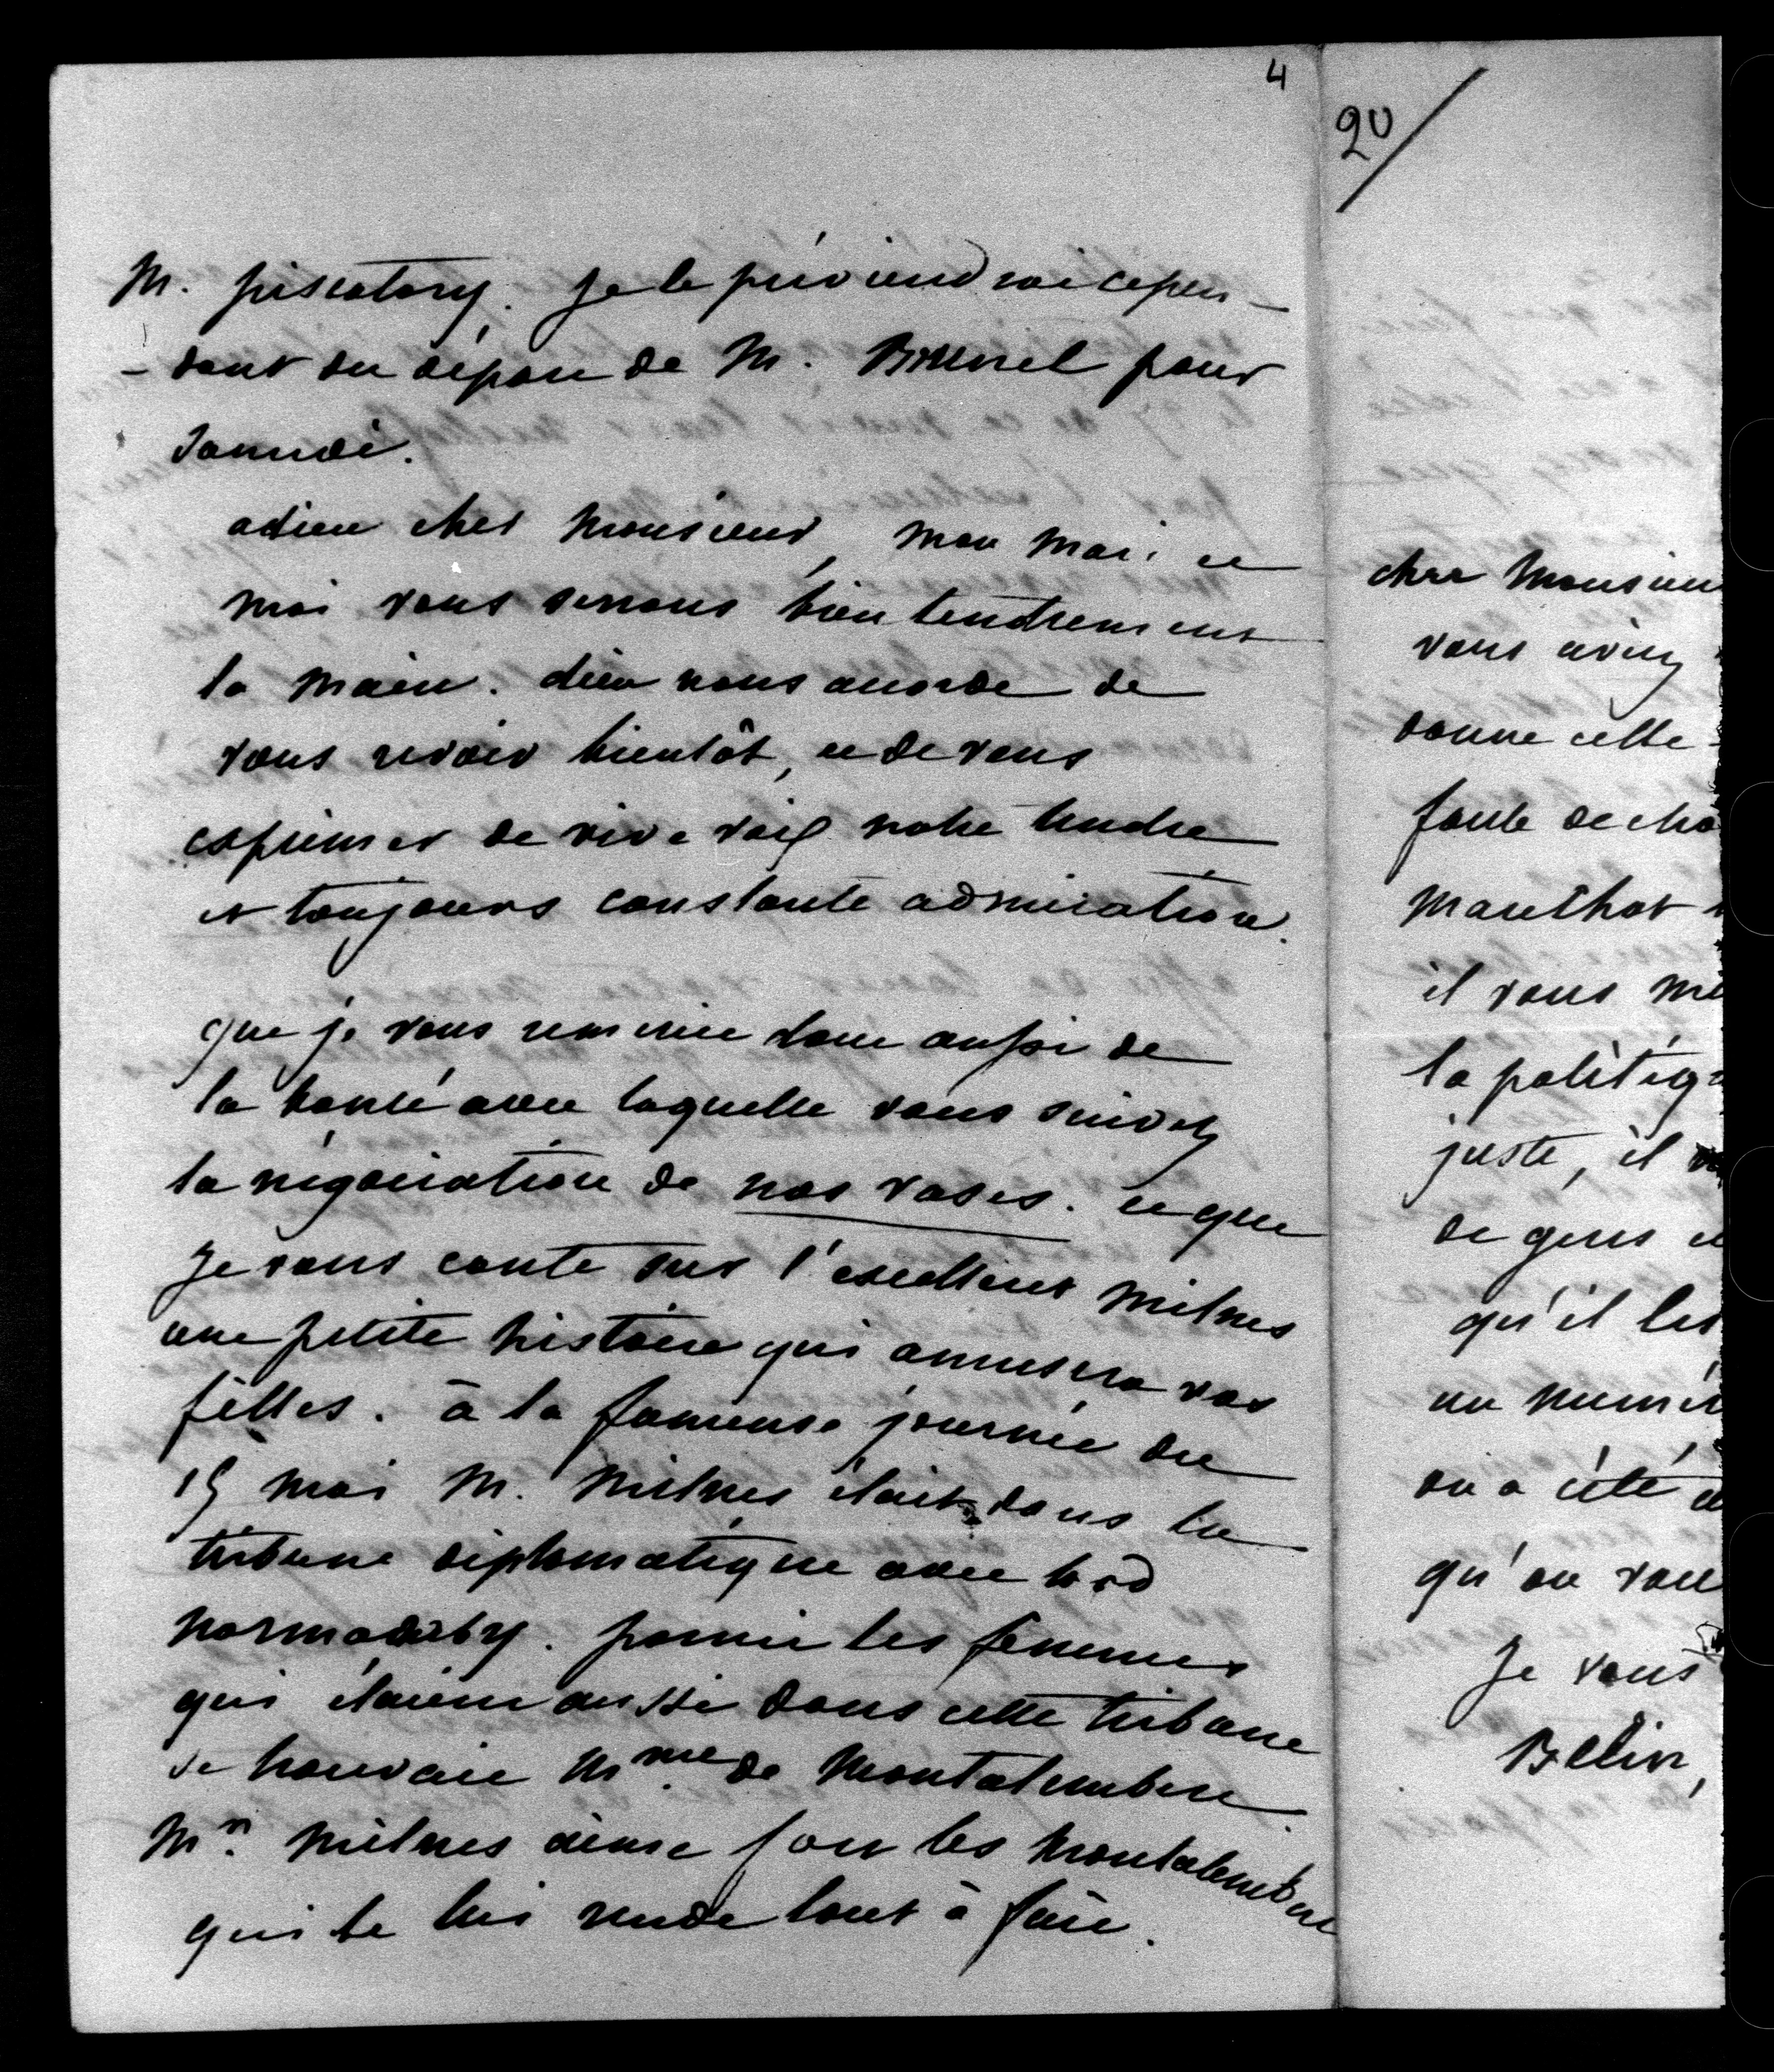 4
M. piscatory. je le préviendrai cepen-
-dant du départ de M. Brunel pour
samedi.
adieu cher Monsieur, mon mari et
moi vous serrons bien tendrement
la main. dieu nous accorde de
vous revoir bientôt, et de vous
exprimer de vive voix notre tendre
et toujours constante admiration.
que je vous remercie donc aussi de
la bonté avec laquelle vous suivez
la négociation de nos vases. et que
je vous conte sur l'excellent Milnes
une petite histoire qui amusera vos
filles. à la fameuse journée du
15 mai M. Milnes était dans la
tribune diplomatique avec lord
normanby. parmi les femmes
qui étaient aussi dans cette tribune
se trouvait Mme de Montalembert.
Mr. Milnes aime fort les Montalembert
qui le lui rende tout à fait.
20/
cher Monsieu
vous aviez
donne cette
foule de cho
marchat
il vous
la politiq
juste, il
de gens et
qu'il les
un numér
on a été
qu'on vou
Je vous